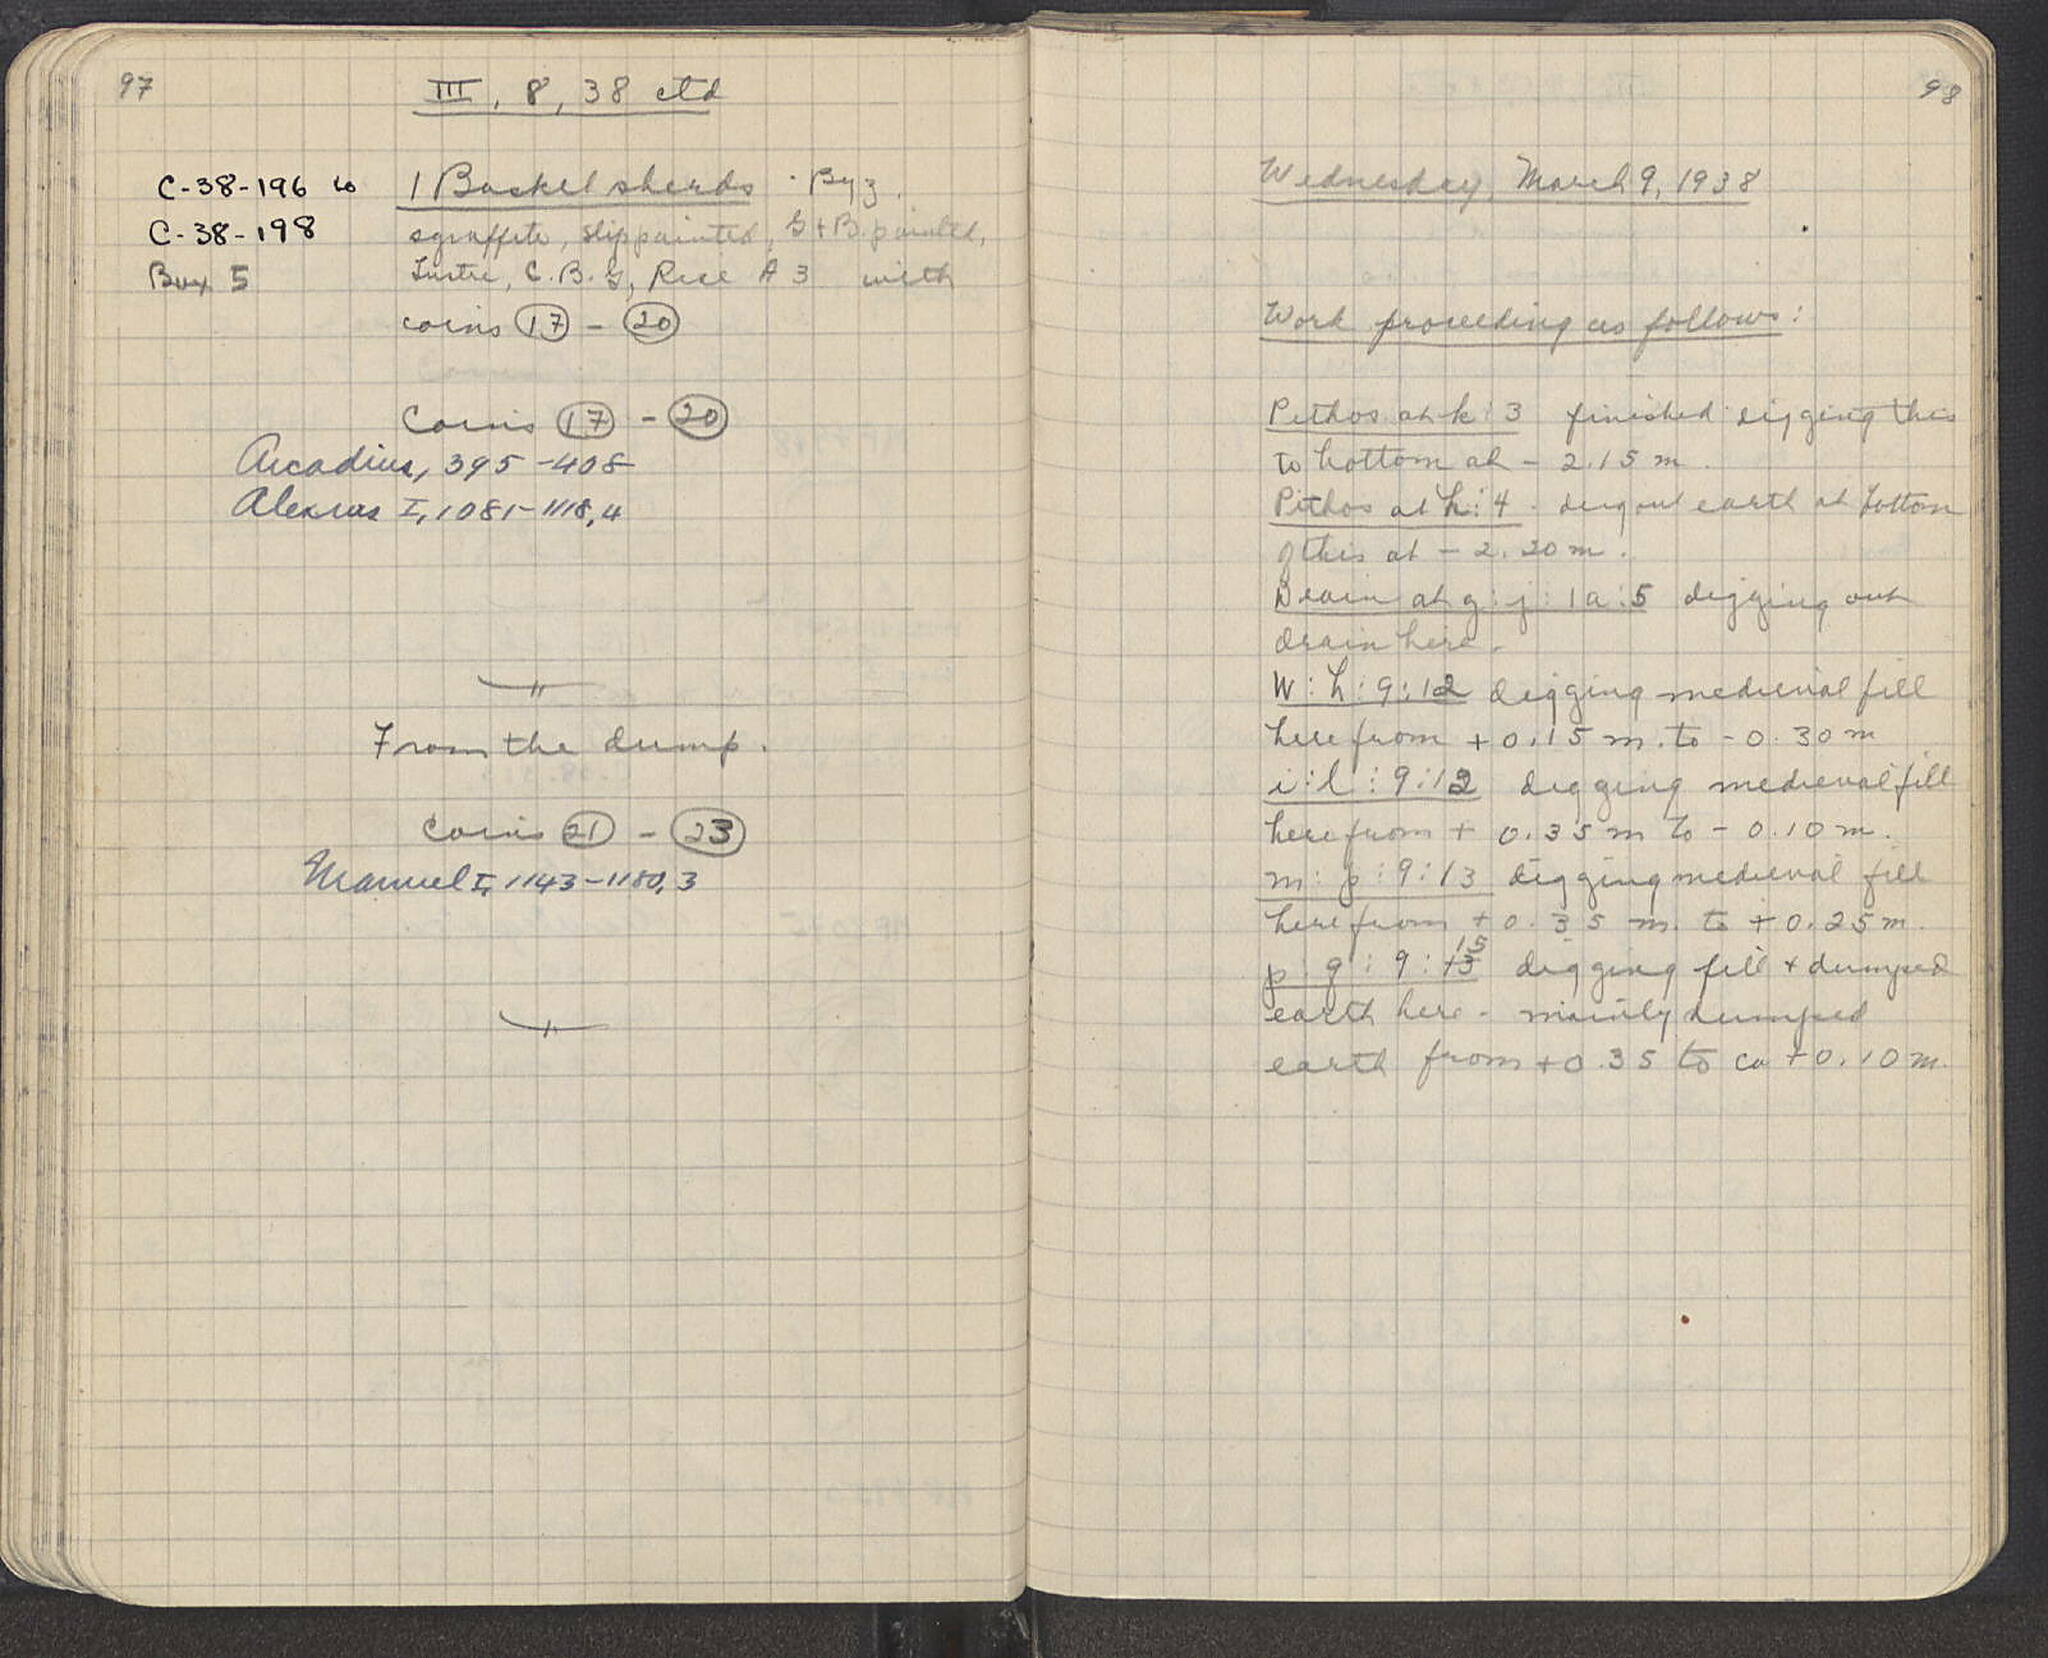 97
III, 8, 38 ctd
C-38-196 to
C-38-198
Box 5
1 Basket sherds · Byz.
sgraffito, slip painted, G + B. painted,
Lustre, C.B.G, Rice A 3 with
coins 17 - 20
Coins 17 - 20
Arcadius, 395-408
Alexius I, 1081-1118, 4
From the dump.
Coins 21 - 23
Manuel I, 1143-1180, 3
98
Wednesday, March 9, 1938
Work proceeding as follows:
Pithos at k:3 finished digging this
to bottom at - 2.15 m.
Pithos at h:4 - dug out earth at bottom
of this at - 2.20 m.
Drain at g:j:1a:5 digging out
drain here.
W:h:9:12 digging medieval fill
here from + 0.15 m. to - 0.30 m
i:l:9:12 digging medieval fill
here from + 0.35 m to - 0.10 m.
m:p:9:13 digging medieval fill
here from + 0.35 m. to + 0.25 m.
p:q:9:13 15 digging fill + dumped
earth here - mainly dumped
earth from +0.35 to ca +0.10 m.